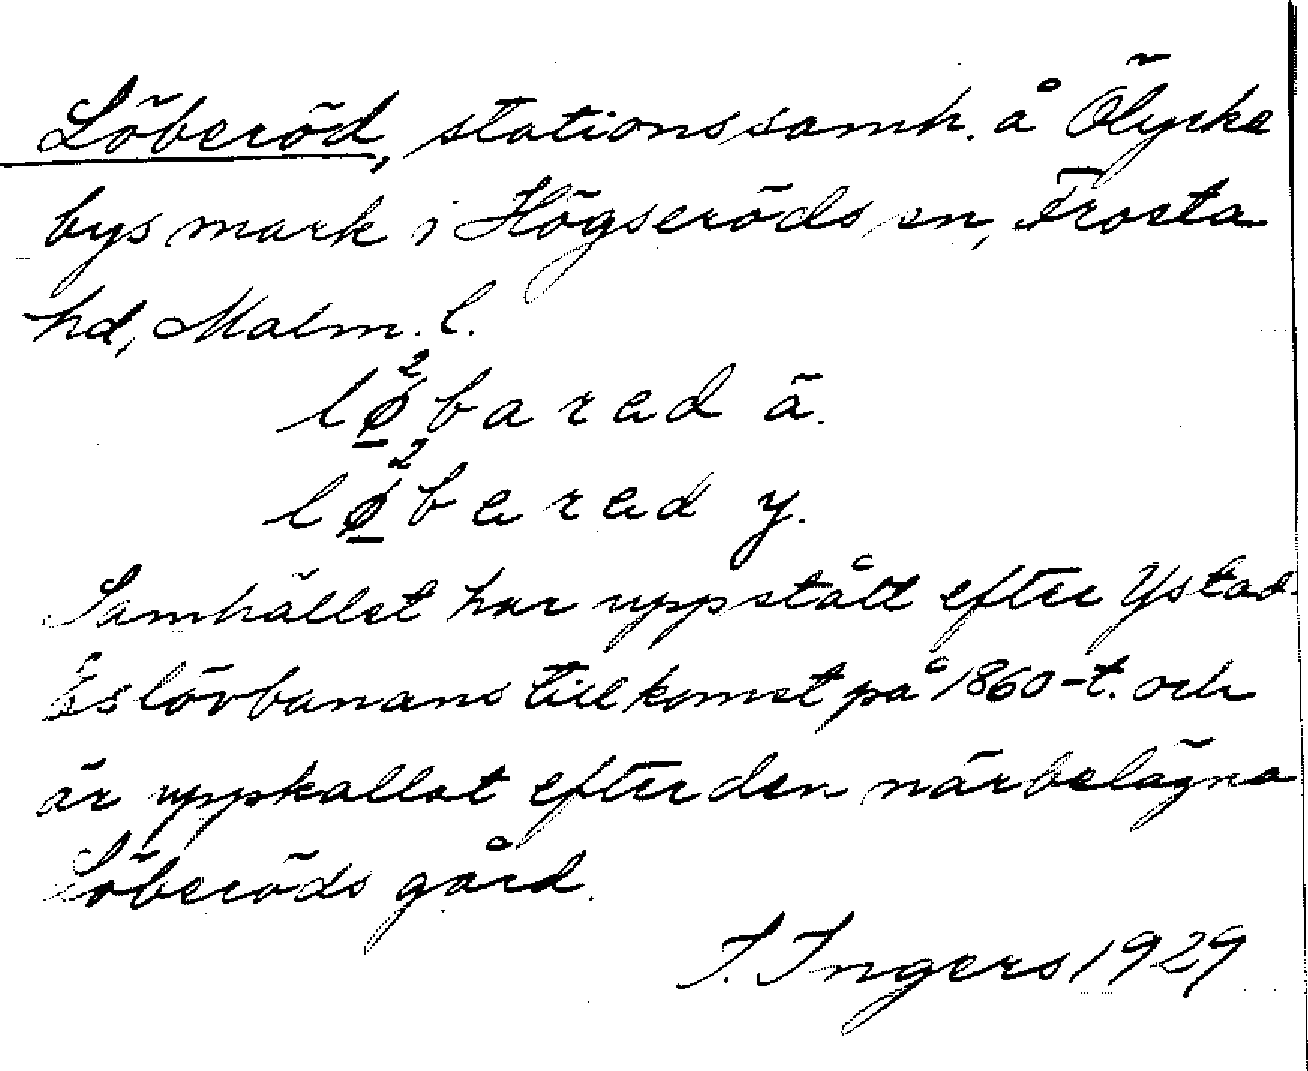 Löberöd, stationssamh. å Ölycke
bys mark i Högseröds sn, Frosta
hd, Malm. l.
lø̱²barad ä.
lø̱²barad y.
Samhället har uppstått efter Ystad-
Eslövbanans tillkomst på 1860-t. och
är uppkallat efter den närbelägna
Löberöds gård.
I. Ingers 1929